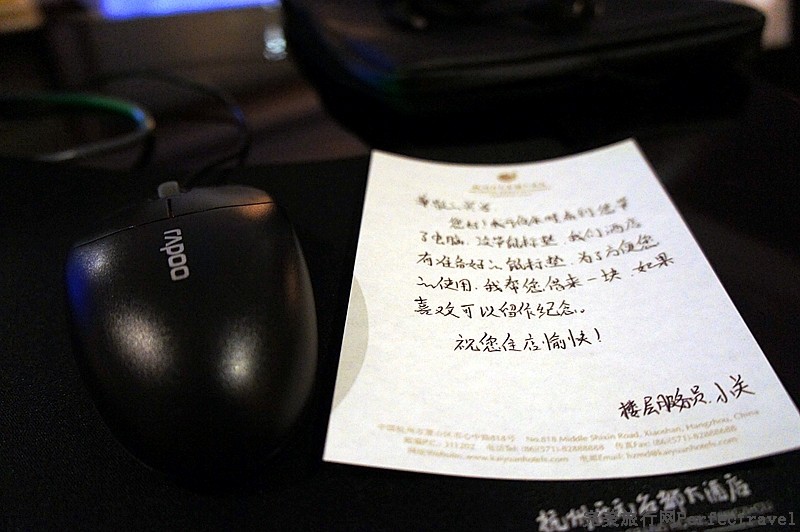 rapoo
尊敬的宾客
您好!我干房来时看到您带
了电脑,没带鼠标垫,我们酒店
有准备好的鼠标垫,为了方便您
的使用,我帮您借来一块,如果
喜欢可以留作纪念。
祝您住店愉快!
楼层服务员:小关
中国杭州市萧山区市心中路818号 No.818 Middle Shixin Road, Xiaoshan, Hangzhou, China
邮编P.C.: 311202 电话Tel: (86)(571)-82888888 传真Fax: (86)(571)-82868688
网址Website: www.kaiyuanhotels.com 电邮Email: hzmd@kaiyuanhotels.com
杭州开元名都大酒店
完美旅行网Perfectravel